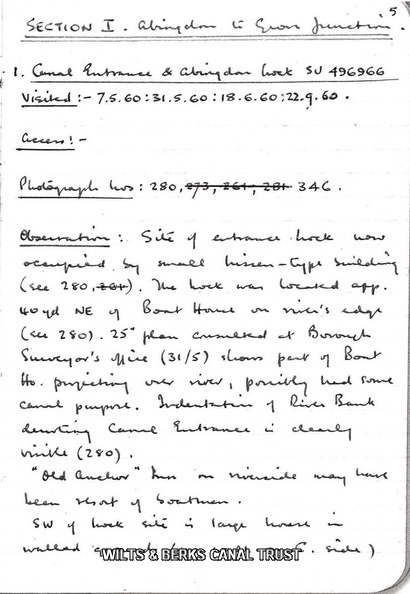 5
SECTION I. Abingdon to Grove Junction.
1. Canal Entrance & Abingdon Lock SU 496966
Visited :- 7.5.60 : 31.5.60 : 18.6.60 : 22.9.60.
Access :-
Photograph Nos : 280, 273, 261, 281 346.
Observation : Site of entrance lock now
occupied by small Nissen-type building
(see 280, 261). The lock was located app.
40 yd NE of Boat House on river's edge
(see 280). 25" plan consulted at Borough
Surveyor's office (31/5) shows part of Boat
Ho. projecting over river, possibly had some
canal purpose. Indentation of River Bank
denoting Canal Entrance is clearly
visible (280).
"Old Anchor" Inn on riverside may have
been resort of boatmen.
SW of lock site is large house in
walled side)
WILTS & BERKS CANAL TRUST